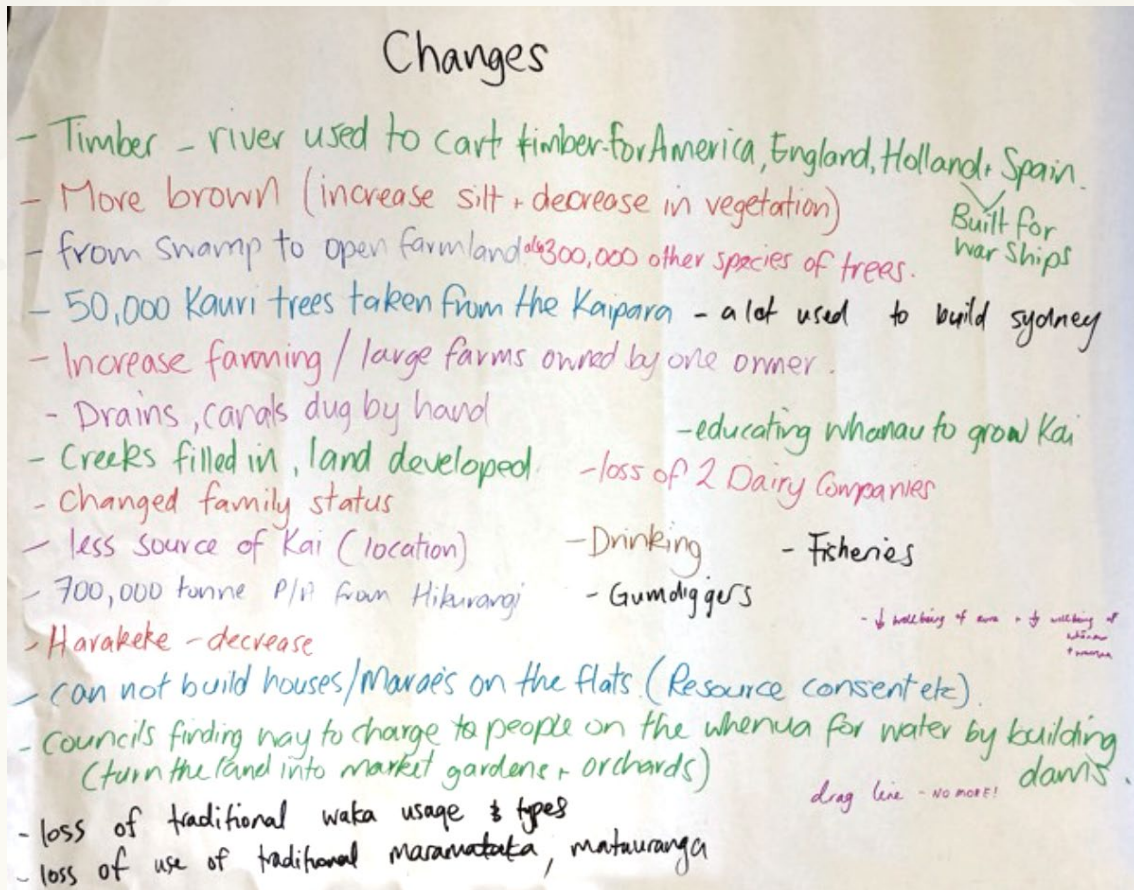 Changes
- Timber - river used to cart timber for America, England, Holland + Spain.
Built for
war ships
- More brown (increase silt + decrease in vegetation)
- from swamp to open farmland also 300,000 other species of trees.
- 50,000 Kauri trees taken from the Kaipara - a lot used to build sydney
- Increase farming / large farms owned by one owner.
- Drains, canals dug by hand
- educating whanau to grow Kai
- Creeks filled in, land developed.
- loss of 2 Dairy Companies
- Changed family status
- less source of Kai (location)
- Drinking
- Fisheries
- 700,000 tonne P/A from Hikurangi
- Gumdiggers
- ↓ wellbeing of awa + ↓ wellbeing of
whanau
- Harakeke - decrease
- can not build houses/Maraes on the flats. (Resource consent etc).
- Councils finding way to charge to people on the whenua for water by building
dams.
(turn the land into market gardens + orchards)
drag line - NO MORE!
- loss of traditional waka usage & types
- loss of use of traditional maramataka, matauranga